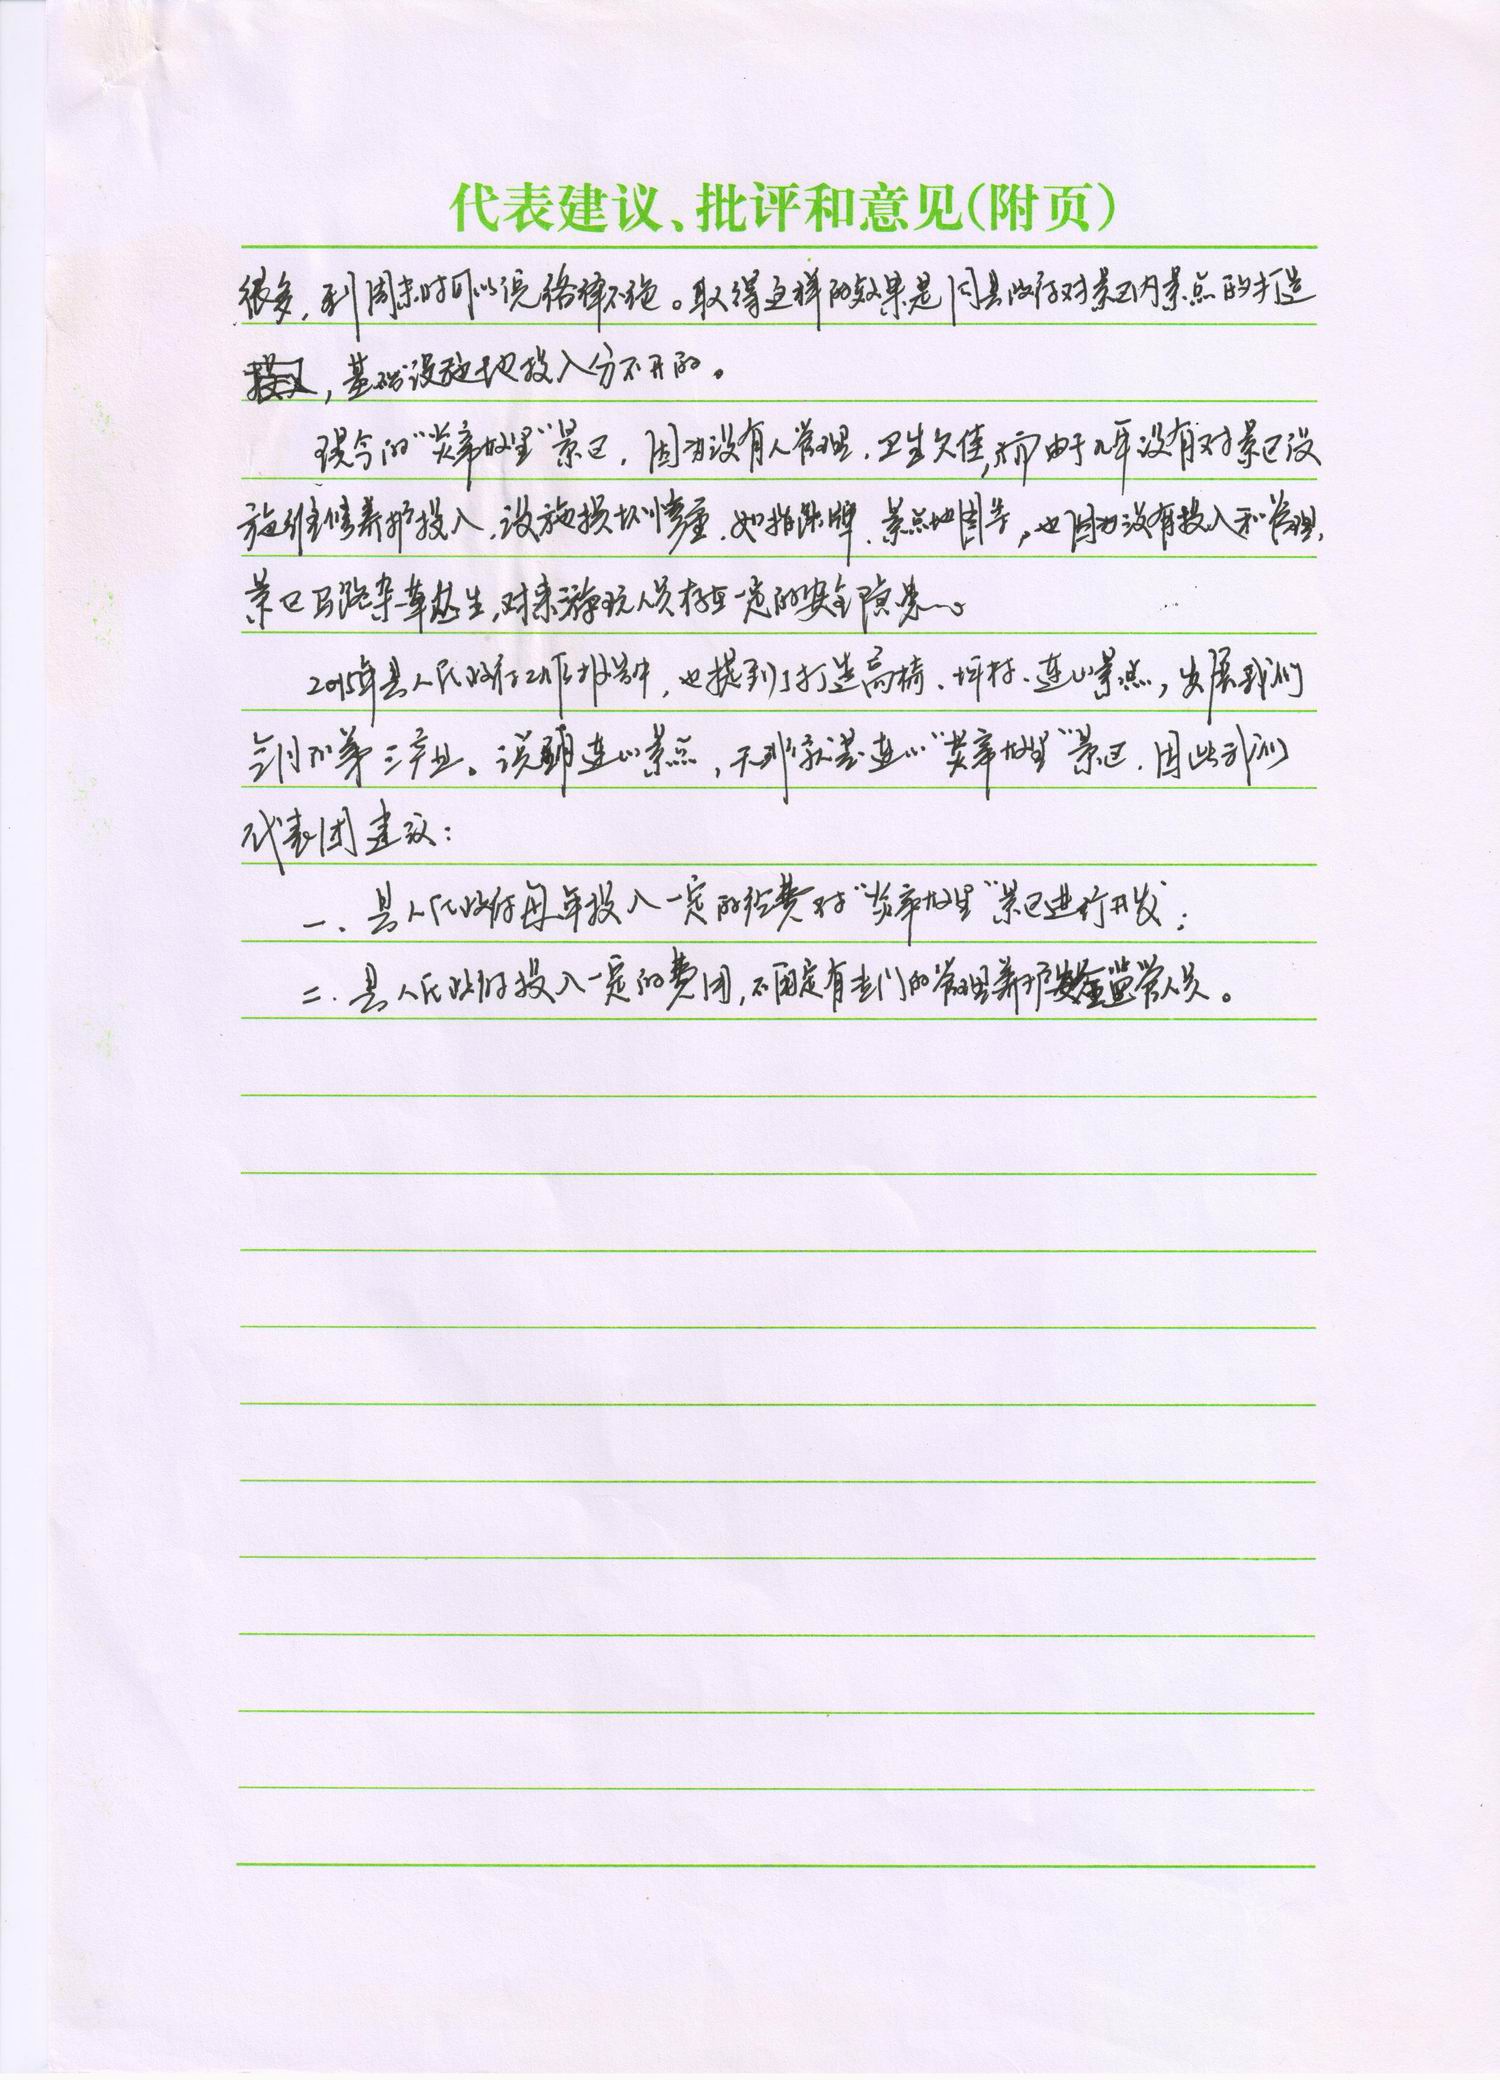 代表建议、批评和意见(附页)
很多,到周末时可以说络绎不绝。取得这样的效果是同县政府对景区内景点的打造
,基础设施地投入分不开的。
现今的“炎帝故里”景区,因为没有人管理,卫生欠佳,而由于几年没有对景区设
施维修养护投入,设施损坏严重,如指路牌、景点地图等,也因为没有投入和管理,
景区马路杂草丛生,对来游玩人员存在一定的安全隐患。
2015年县人民政府工作报告中,也提到了打造高椅、坪村、连山景点,发展我们
会同的第三产业。说到连山景点,无非就是连山“炎帝故里”景区,因此我们
代表团建议:
一、县人民政府每年投入一定的经费对“炎帝故里”景区进行开发;
二、县人民政府投入一定的费用,固定有专门的管理养护安全监管人员。